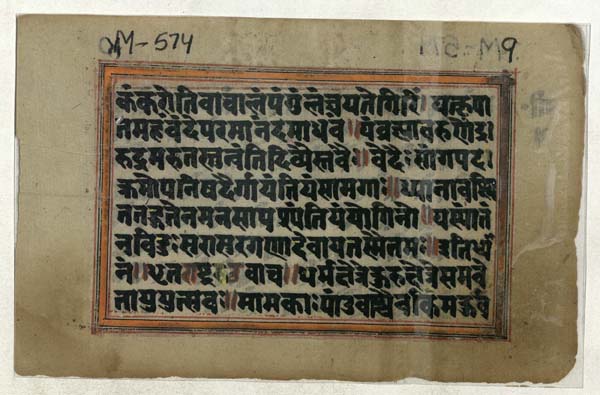 OM-574 9
कंकरोतिवाचालंपंगुंलंघयतेगिरिं॥यत्कृपा
तमहंवंदेपरमानंदमाधवं॥यंब्रह्मावरुणेंद्र
रुद्रमरुतस्तुन्वंतिदिव्यैस्तवैः॥वेदैःसांगपद
क्रमोपनिषदैर्गायंतियंसामगाः॥ध्यानावस्थि
ततद्गतेनमनसापश्यंतियंयोगिनो॥यस्यांतं
नविदुःसुरासुरगणादेवायतस्मैनमः॥इतिध्यां
नं॥धृतराष्ट्रउवाच॥धर्मक्षेत्रेकुरुक्षेत्रेसमवे
तायुयुत्सवः॥मामकाःपांडवाश्चैवकिमकुर्व